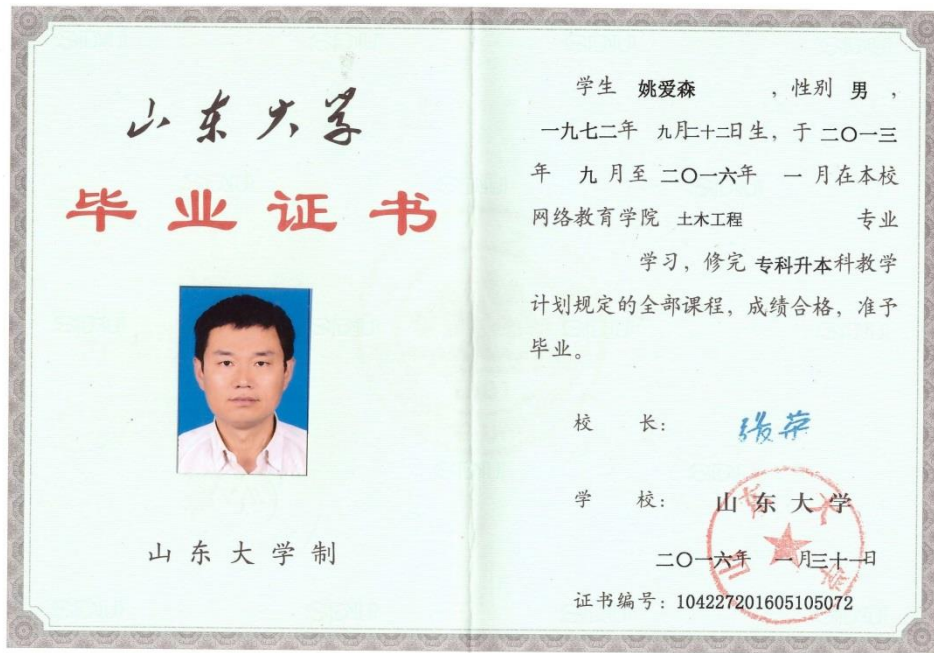 山东大学
毕业证书
山东大学制
学生 姚爱森 ，性别 男 ，
一九七二年 九月二十二日生，于 二〇一三
年 九 月至 二〇一六年 一 月在本校
网络教育学院 土木工程 专业
学习，修完 专科升本科教学
计划规定的全部课程，成绩合格，准予
毕业。
校 长： 张荣
学 校： 山东大学
山东大学
二〇一六年 一月三十一日
证书编号：104227201605105072